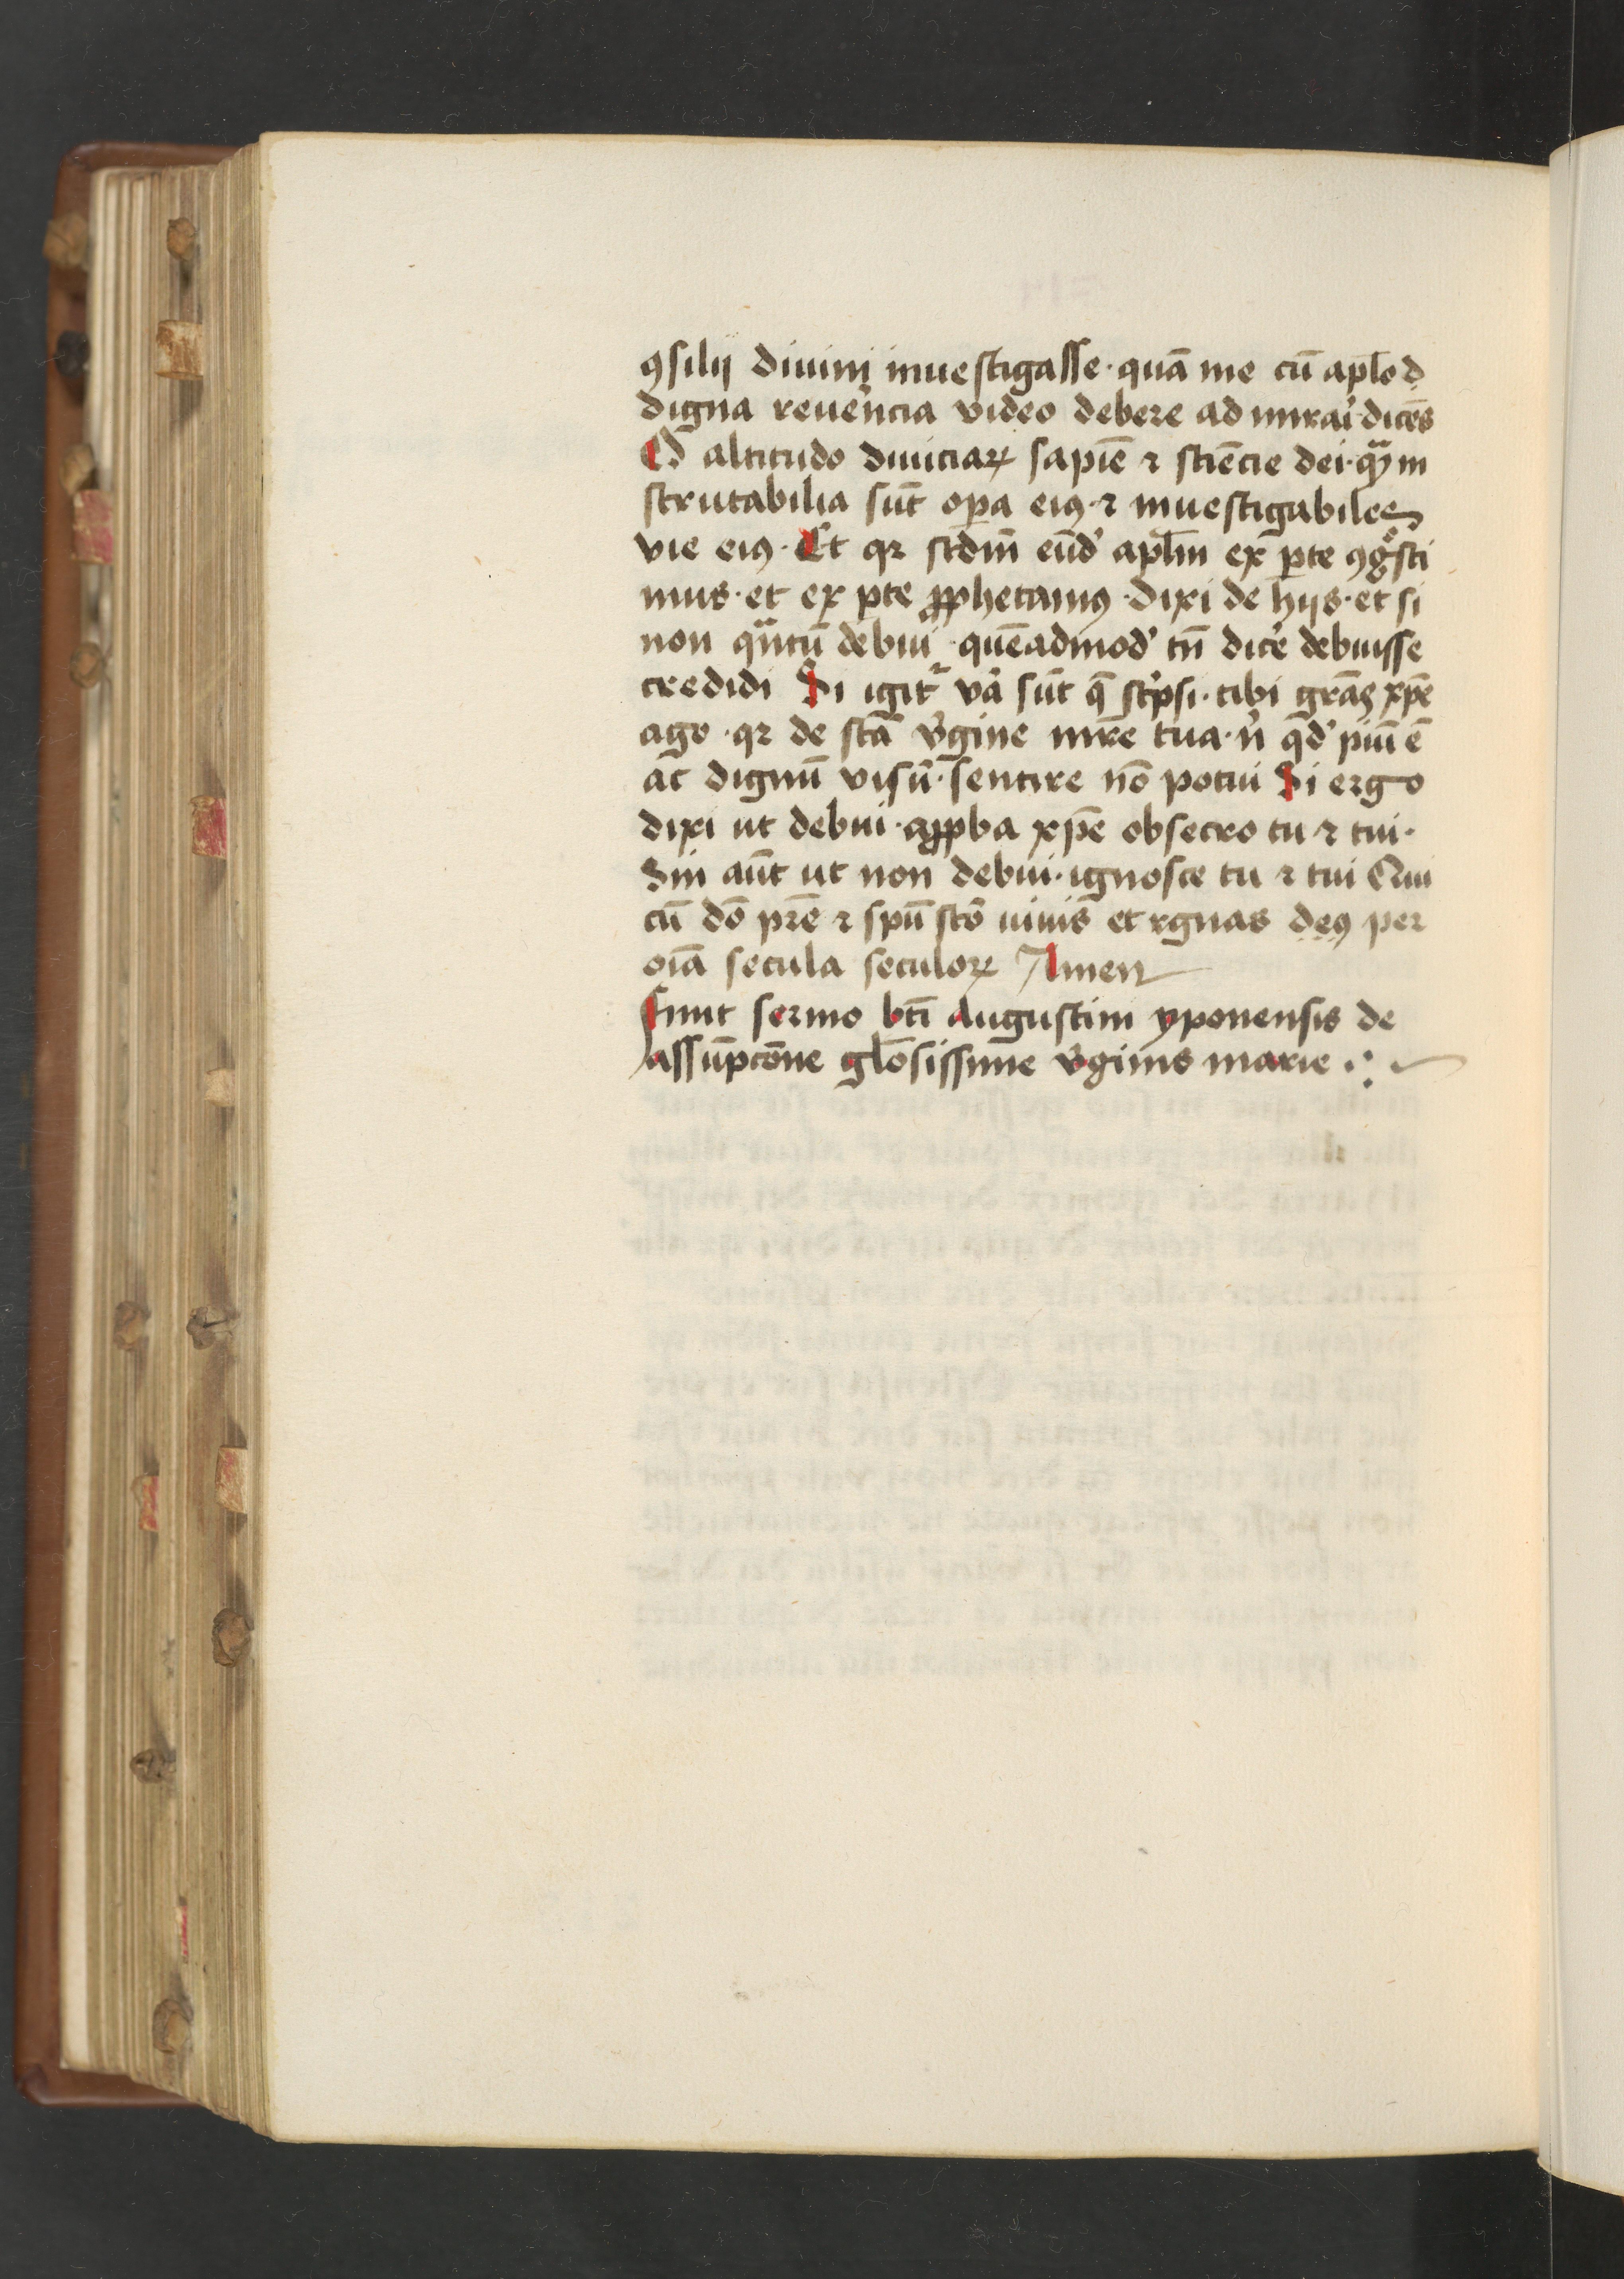 ꝯsilij diuini inuestigasse · quā me cū aplō d
digna reue᷒ncia video debere ad mirari dicēs
O altitudo diuiciaꝝ sapiē ⁊ sciēcie dei · qᷓm in
scrutabilia sūt oꝑa eiꝰ · ⁊ inuestigabiles
vie eiꝰ · Et qꝛ scdm̄ eūd' aplm̄ ex ꝑte ꝯgͦsci
mus · et ex ꝑte ꝓphetamꝰ · dixi de hijs · et si
non qᷓntū debui · quēadmod' tn̄ dice᷒ debuisse
credidi Si igit᷑ va᷒ sūt q̄ sc᷒psi · tibi grās xp̄e
ago · qꝛ de scā v᷒gine mr̄e tua · n᷒ qd' piū ē
ac dignū visū · sentire nō potui Si ergo
dixi ut debui · apꝓba xp̄e obsecro tu ⁊ tui ·
Sin aūt ut non debui · ignosce tu ⁊ tui Qui
cū dō pr̄e ⁊ spū scō uiuis et rgnas deꝰ per
oīa secula seculoꝝ Amen
Finit sermo bti̅ Augustini yponensis de
assūpcōne glōsissime v᷒ginis marie